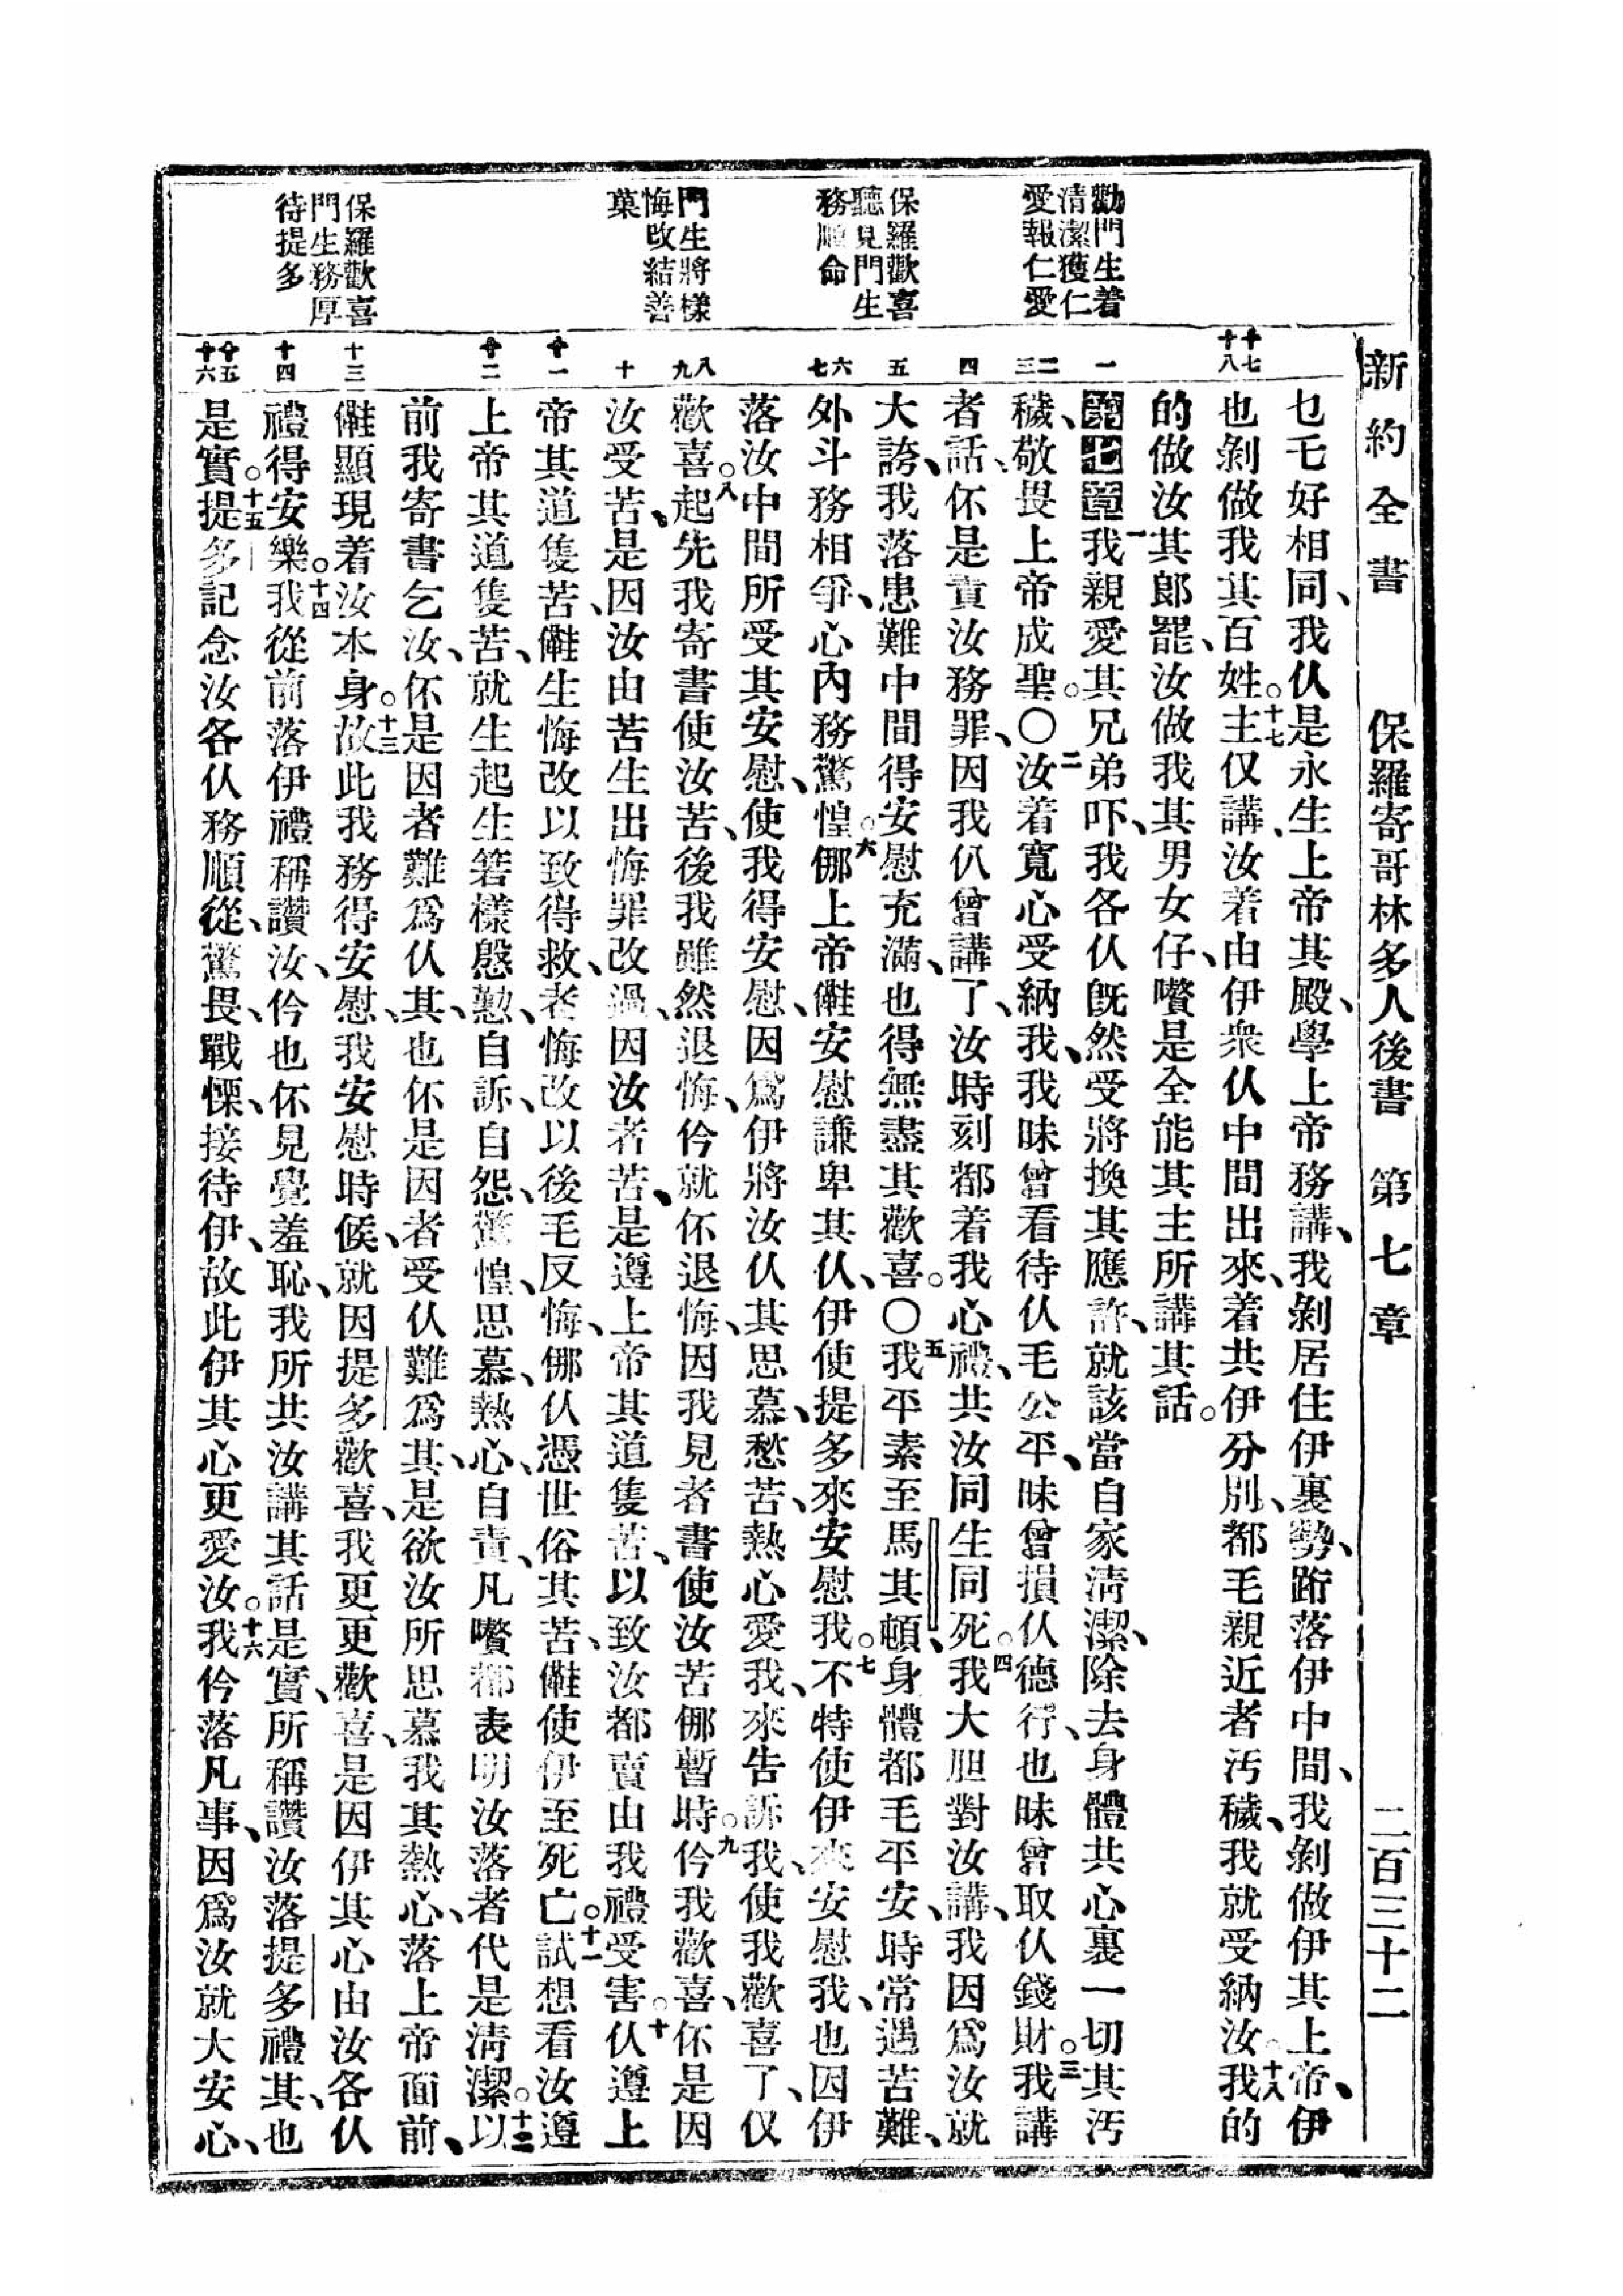 新約全書 保羅寄哥林多人後書 第七章 二百三十二
勸門生着
清潔獲仁
愛報仁愛
保羅歡喜
聽見門生
務順命
門生將樣
悔改結善
菓
保羅歡喜
門生務厚
待提多
十七
十八
一
二
三
四
五
六
七
八
九
十
十一
十二
十三
十四
十五
十六
乜毛好相同、我仈是永生上帝其殿、學上帝務講、我剝居住伊裏、勢跲落伊中間、我剝做伊其上帝、伊
也剝做我其百姓。十七主仅講、汝着由伊衆仈中間出來、着共伊分別、都毛親近者汚穢、我就受納汝。十八我的
的做汝其郎罷、汝做我其男女仔、囋是全能其主所講其話。
第七章一我親愛其兄弟吓、我各仈旣然受將換其應許、就該當自家淸潔、除去身體共心裏一切其汚
穢、敬畏上帝成聖。〇二汝着寬心受納我、我昧曾看待仈毛公平、昧曾損仈德行、也昧曾取仈錢財。三我講
者話、伓是責汝務罪、因我仈曾講了、汝時刻都着我心禮、共汝同生同死。四我大胆對汝講、我因爲汝就
大誇、我落患難中間得安慰充滿、也得無盡其歡喜。〇五我平素至馬其頓、身體都毛平安、時常遇苦難、
外斗務相爭、心內務驚惶。六㑚上帝㒹安慰謙卑其仈、伊使提多來安慰我。七不特使伊來安慰我、也因伊
落汝中間所受其安慰、使我得安慰、因爲伊將汝仈其思慕、愁苦、熱心愛我、來告訴我、使我歡喜了、仅
歡喜。八起先我寄書使汝苦、後我雖然退悔、仱就伓退悔、因我見者書使汝苦㑚暫時。九仱我歡喜、伓是因
汝受苦、是因汝由苦生出悔罪改過、因汝者苦、是遵上帝其道隻苦、以致汝都賣由我禮受害。十仈遵上
帝其道隻苦、㒹生悔改以致得救、者悔改以後毛反悔、㑚仈憑世俗其苦、㒹使伊至死亡。十一試想看汝遵
上帝其道隻苦、就生起生箬樣慇懃、自訴、自怨、驚惶、思慕、熱心、自責、凡囋都表明汝落者代是淸潔。十二以
前我寄書乞汝、伓是因者難爲仈其、也伓是因者受仈難爲其、是欲汝所思慕我其熱心、落上帝面前、
㒹顯現着汝本身。十三故此我務得安慰、我安慰時候、就因提多歡喜、我更更歡喜、是因伊其心由汝各仈
禮得安樂。十四我從前落伊禮稱讚汝、仱也伓見覺羞恥、我所共汝講其話是實、所稱讚汝落提多禮其、也
是實。十五提多記念汝各仈務順從、驚畏、戰慄、接待伊、故此伊其心更愛汝。十六我仱落凡事、因爲汝就大安心、